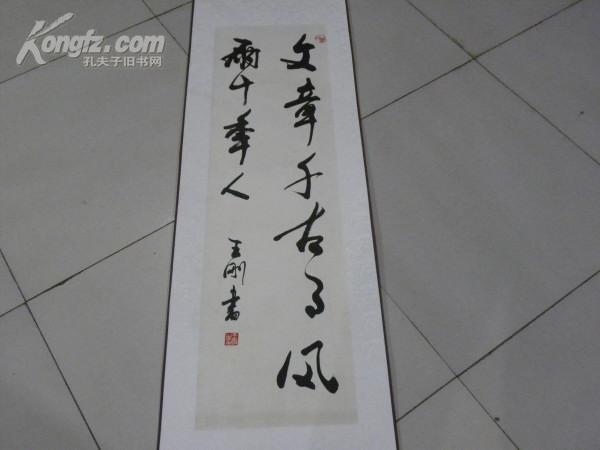 Kongfz.com
孔夫子旧书网
文章千古事风
雨十年人
王刚書